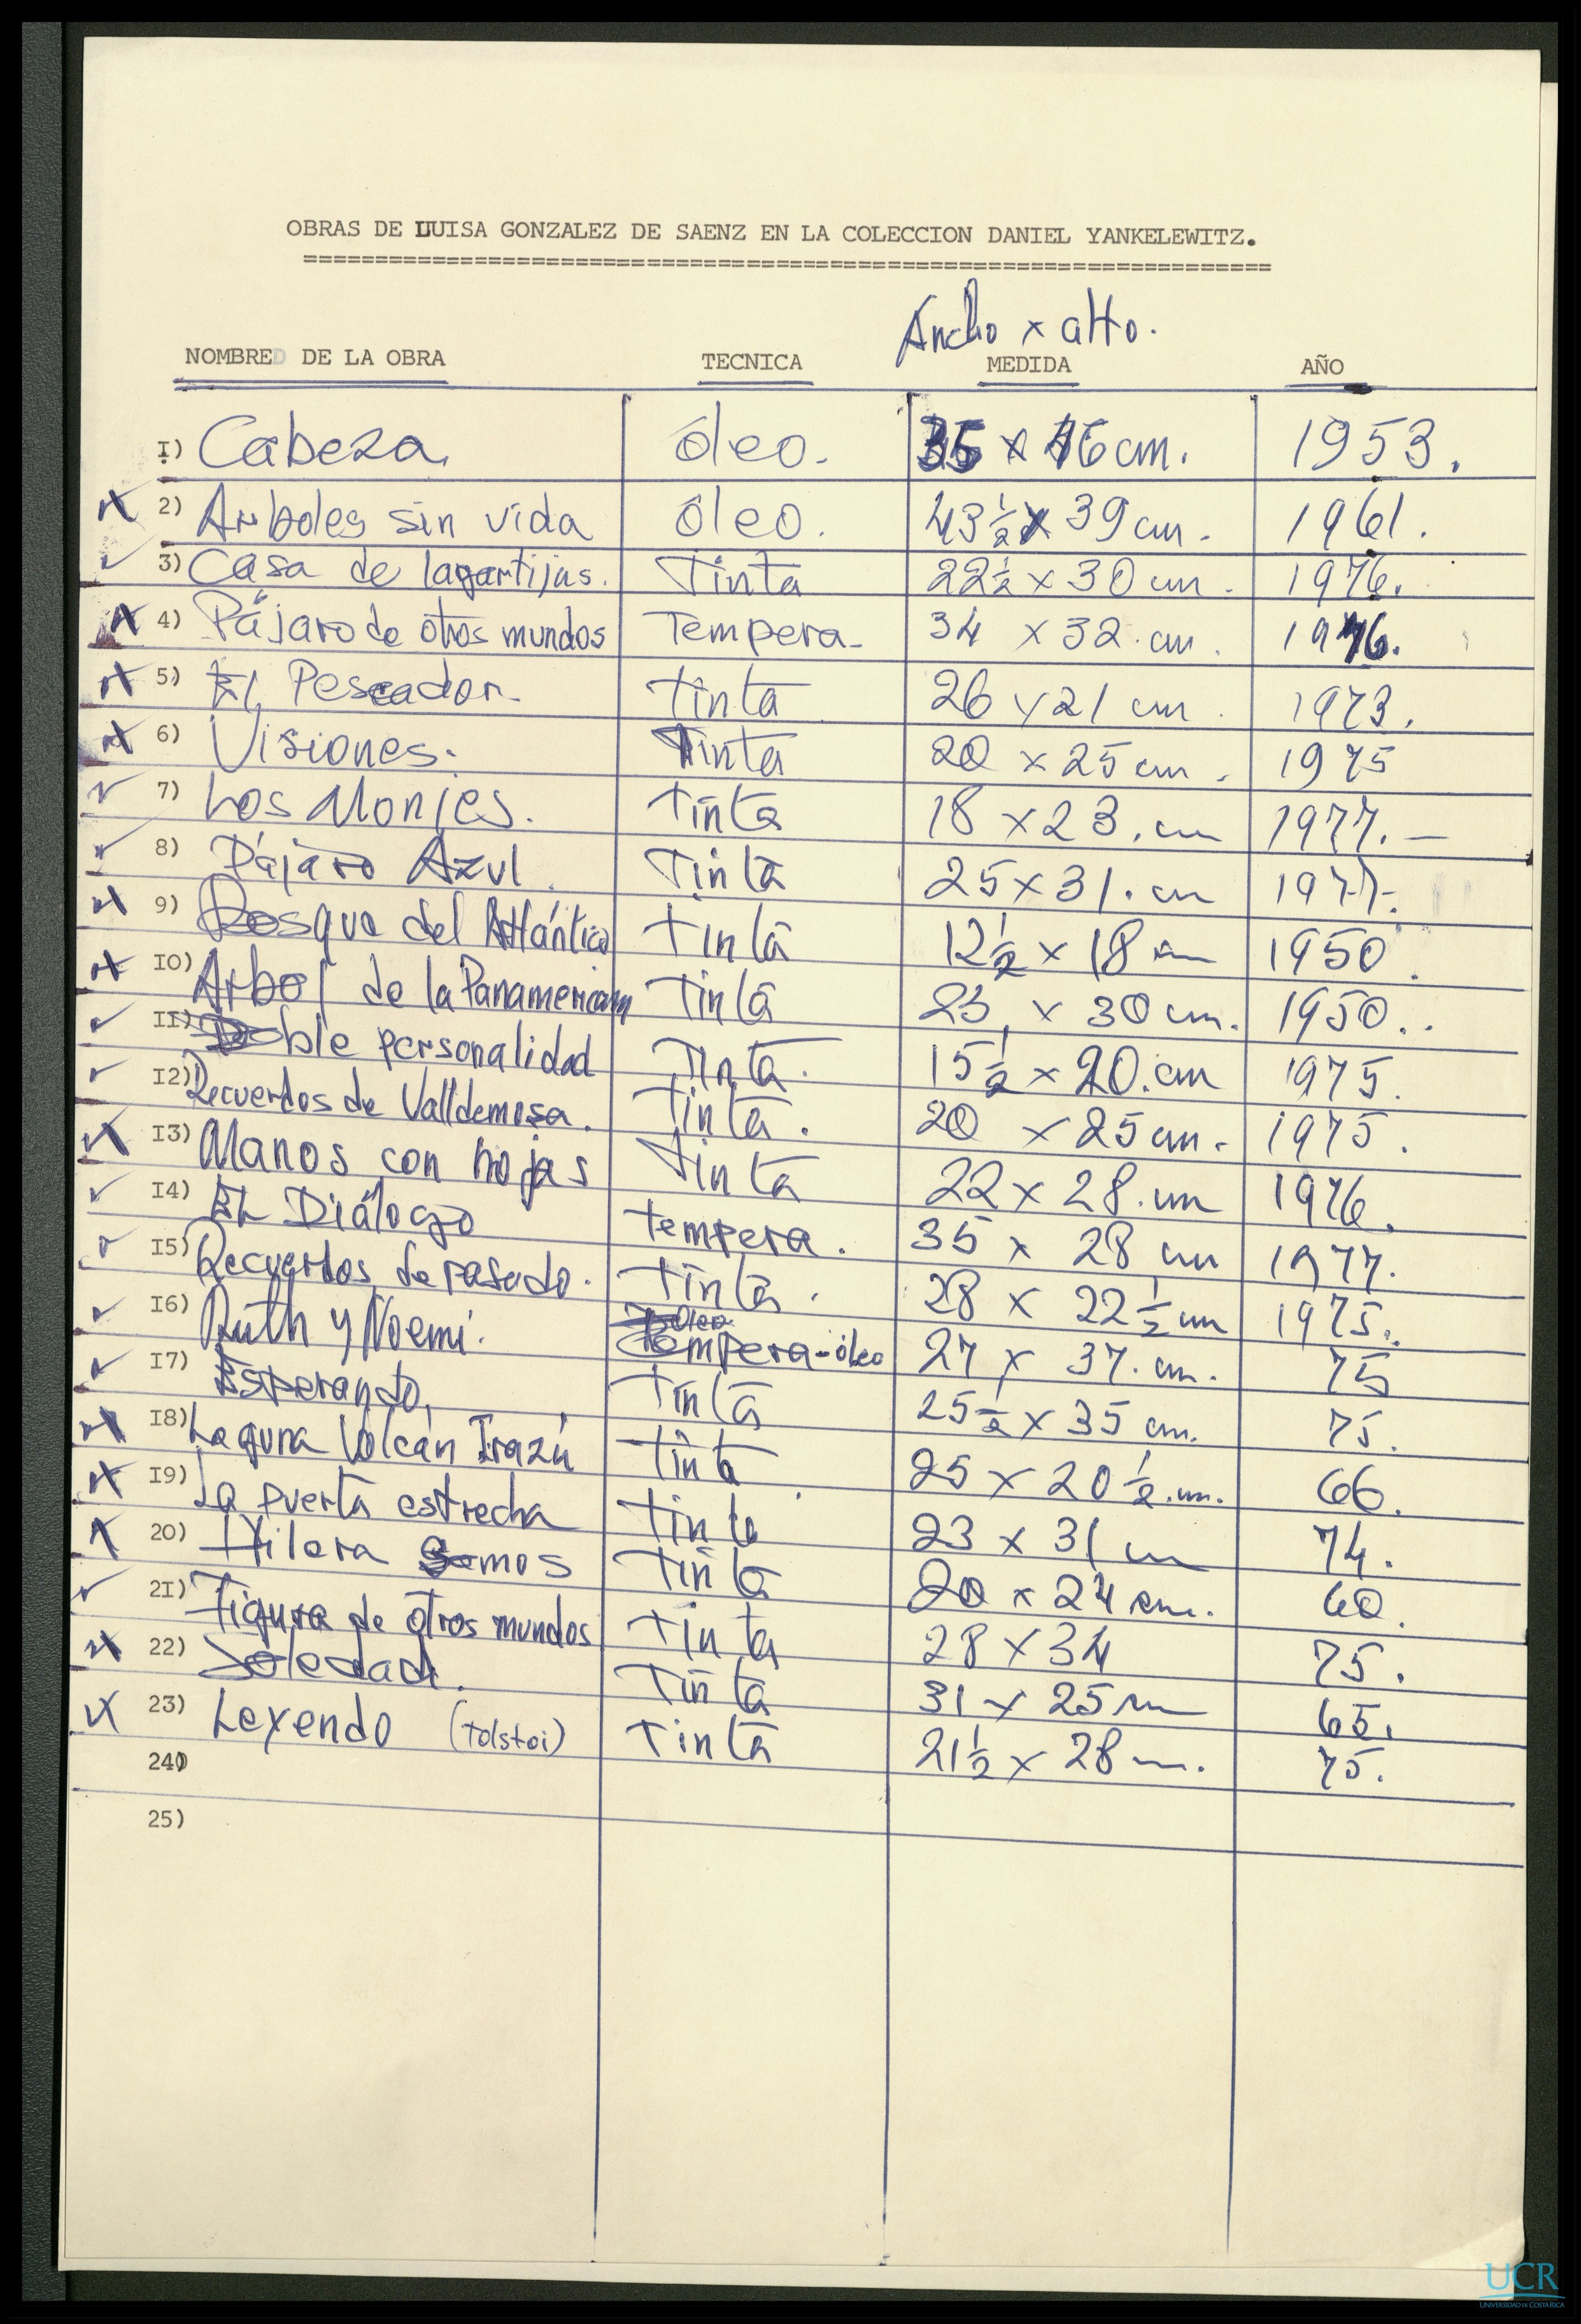 OBRAS DE LUISA GONZALEZ DE SAENZ EN LA COLECCION DANIEL YANKELEWITZ.
Ancho x alto.
NOMBRED DE LA OBRA TECNICA MEDIDA AÑO
I) Cabeza. óleo. 35 x 46 cm. 1953.
2) Arboles sin vida óleo. 43 1/2 x 39 cm. 1961.
3) Casa de lagartijas. Tinta 22 1/2 x 30 cm. 1976.
4) Pájaro de otros mundos Tempera 34 x 32 cm. 1976.
5) El Pescador. Tinta 26 x 21 cm. 1973.
6) Visiones. Tinta 20 x 25 cm. 1975
7) Los Monjes. Tinta 18 x 23. cm 1977.-
8) Pájaro Azul. Tinta 25 x 31. cm 1977.
9) Bosque del Atlántico Tinta 12 1/2 x 18 cm 1950.
IO) Arbol de la Panamericana Tinta 23 x 30 cm. 1950..
II) Doble personalidad Tinta. 15 1/2 x 20. cm 1975.
I2) Recuerdos de Valldemosa. Tinta. 20 x 25 cm. 1975.
I3) Manos con hojas Tinta 22 x 28. cm 1976.
I4) EL Diálogo tempera. 35 x 28 cm 1977.
I5) Recuerdos de pasado. Tinta. 28 x 22 1/2 cm 1975.
I6) Ruth y Noemi. Tempera-óleo 27 x 37. cm. 75
I7) Esperando. Tinta 25 1/2 x 35 cm. 75.
I8) Laguna Volcán Irazú Tinta 25 x 20 1/2 cm. 66.
I9) La puerta estrecha Tinta 23 x 31 cm 74.
20) Hilera mos Tinta 20 x 24 cm. 60.
2I) Figura de otros mundos Tinta 28 x 34 75.
22) Soledad. Tinta 31 x 25 cm 65.
23) Leyendo (Tolstoi) Tinta 21 1/2 x 28 cm. 75.
24)
25)
UCR
UNIVERSIDAD DE COSTA RICA